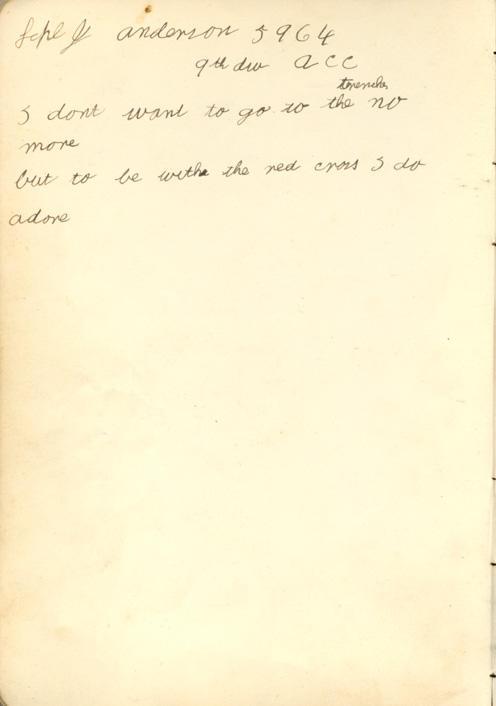 Lcpl J anderson 5964
9th div A C C
trenches
I dont want to go to the no
more
but to be withe the red cross I do
adore